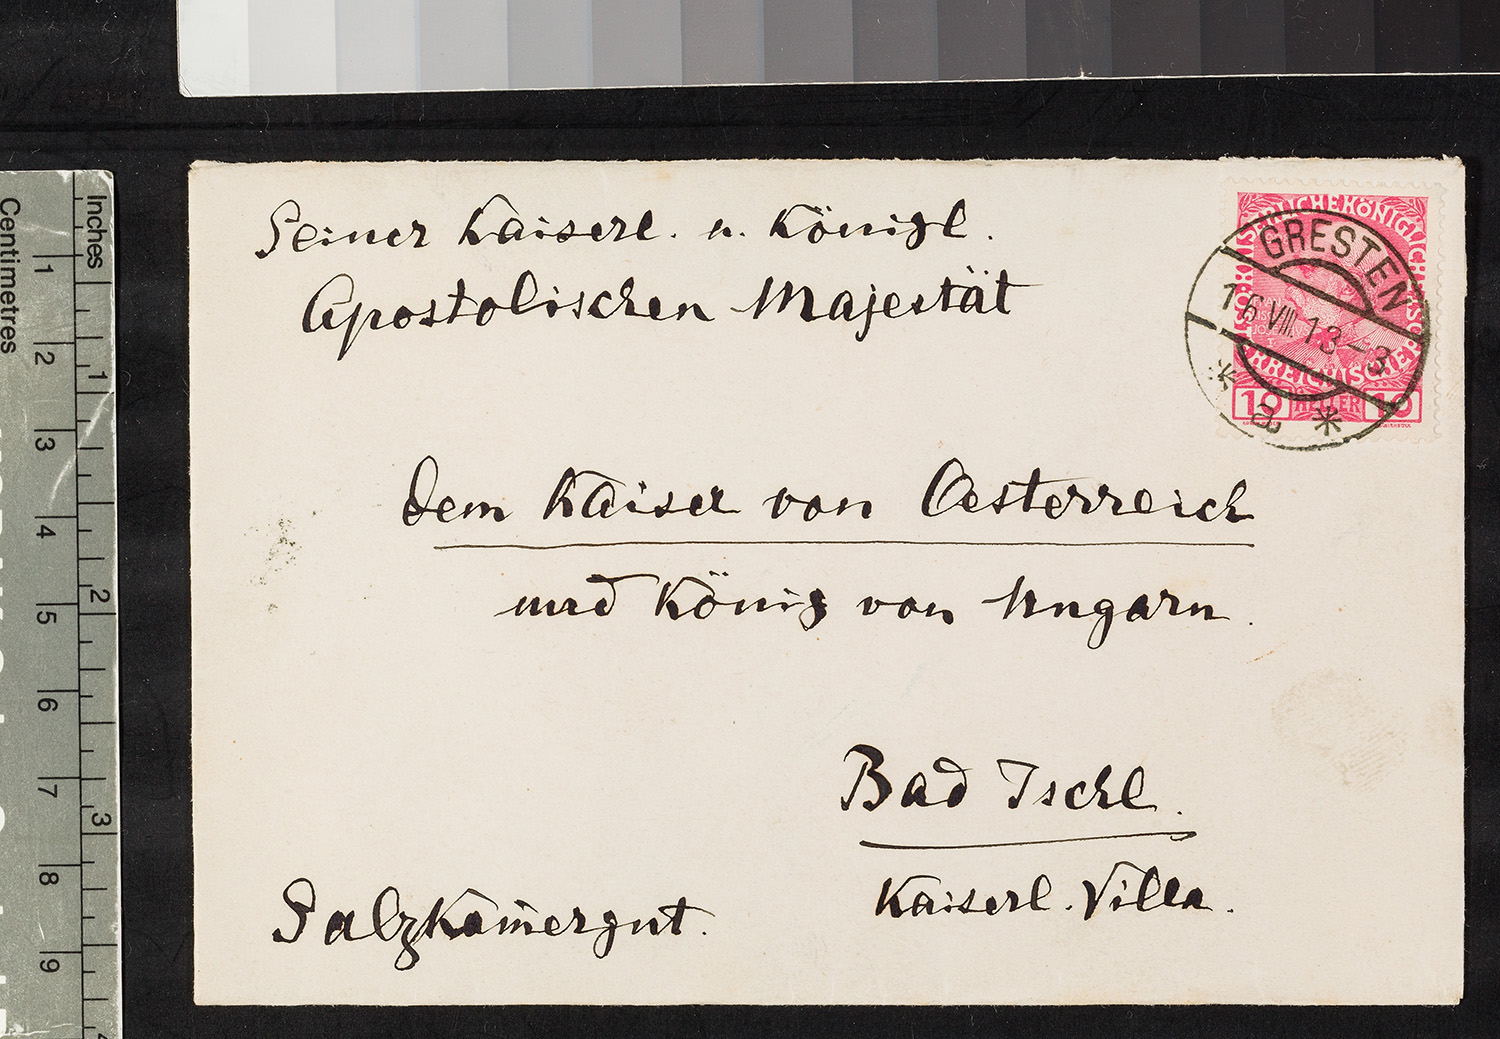 Seiner Kaiserl. u. Königl.
Apostolischen Majestät
dem Kaiser von Oesterreich
und König von Ungarn.
Bad Ischl.
Kaiserl. Villa.
Salzkam̄ergut.
GRESTEN
16 VIII. 13 – 3
* a *
KÖNIGLICHE
ERREICHISCHE
10 HELLER 10
Inches
1
2
3
4
Centimetres
1
2
3
4
5
6
7
8
9